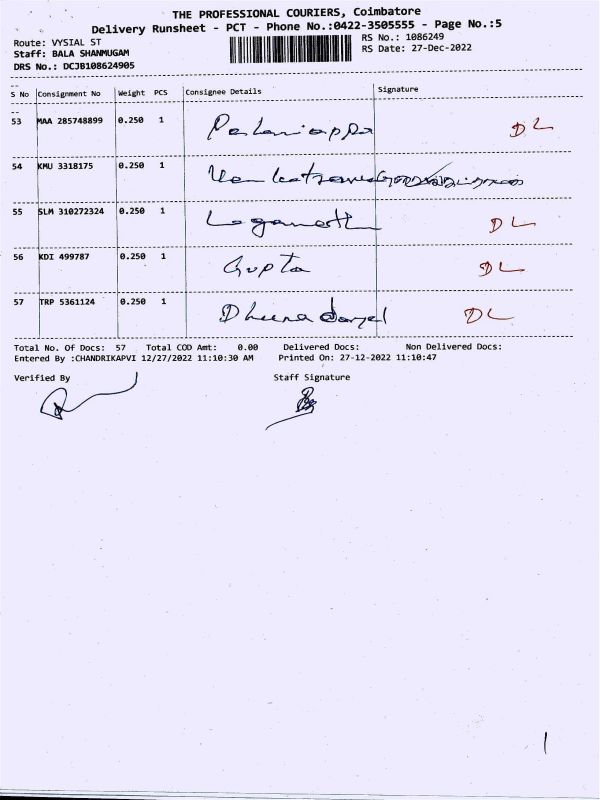 THE PROFESSIONAL COURIERS, Coimbatore
Delivery Runsheet - PCT - Phone No.:0422-3505555 - Page No.:5
Route: VYSIAL ST
RS No.: 1086249
Staff: BALA SHANMUGAM
RS Date: 27-Dec-2022
DRS No.: DCJB108624905
S No Consignment No Weight PCS Consignee Details Signature
53 MAA 285748899 0.250 1 Palaniappa DL
54 KMU 3318175 0.250 1
55 SLM 310272324 0.250 1 Loganath DL
56 KDI 499787 0.250 1 Gupta DL
57 TRP 5361124 0.250 1 DL
Total No. Of Docs: 57 Total COD Amt: 0.00 Delivered Docs: Non Delivered Docs:
Entered By :CHANDRIKAPVI 12/27/2022 11:10:30 AM Printed On: 27-12-2022 11:10:47
Verified By Staff Signature